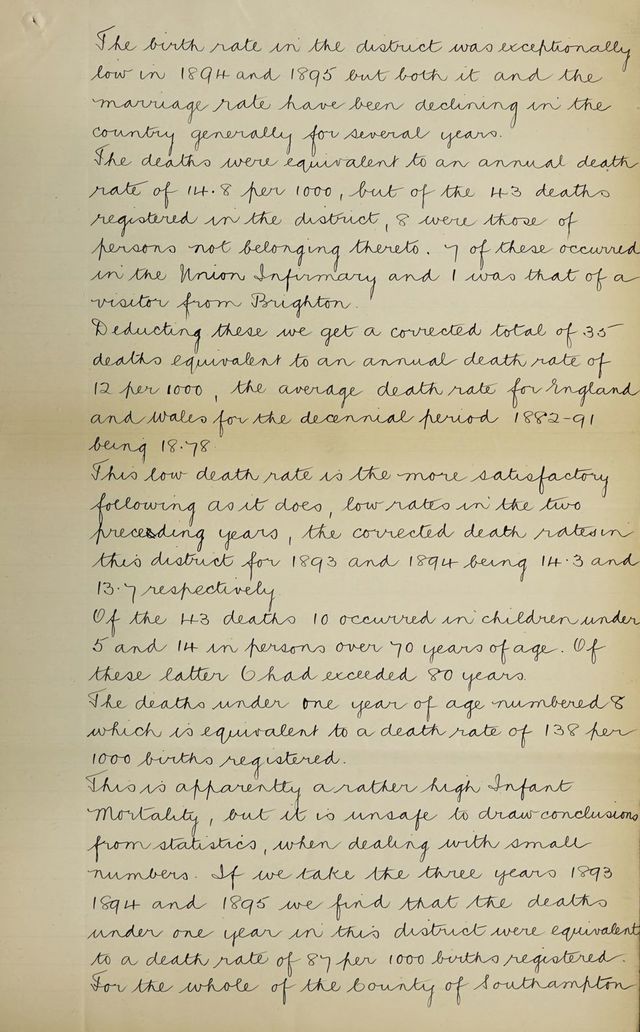 The birth rate in the district was exceptionally
low in 1894 and 1895 but both it and the
marriage rate have been declining in the
country generally for several years.
The deaths were equivalent to an annual death
rate of 14.8 per 1000, but of the 43 deaths
registered in the district, 8 were those of
persons not belonging thereto. 7 of these occurred
in the Union Infirmary and 1 was that of a
visitor from Brighton.
Deducting these we get a corrected total of 35
deaths equivalent to an annual death rate of
12 per 1000, the average death rate for England
and Wales for the decennial period 1882-91
being 18.78
This low death rate is the more satisfactory
following as it does, low rates in the two
preceding years, the corrected death rates in
this district for 1893 and 1894 being 14.3 and
13.7 respectively
Of the 43 deaths 10 occurred in children under
5 and 14 in persons over 70 years of age. Of
these latter 6 had exceeded 80 years.
The deaths under one year of age numbered 8
which is equivalent to a death rate of 138 per
1000 births registered.
This is apparently a rather high Infant
Mortality, but it is unsafe to draw conclusions
from statistics, when dealing with small
numbers. If we take the three years 1893
1894 and 1895 we find that the deaths
under one year in this district were equivalent
to a death rate of 87 per 1000 births registered.
For the whole of the County of Southampton